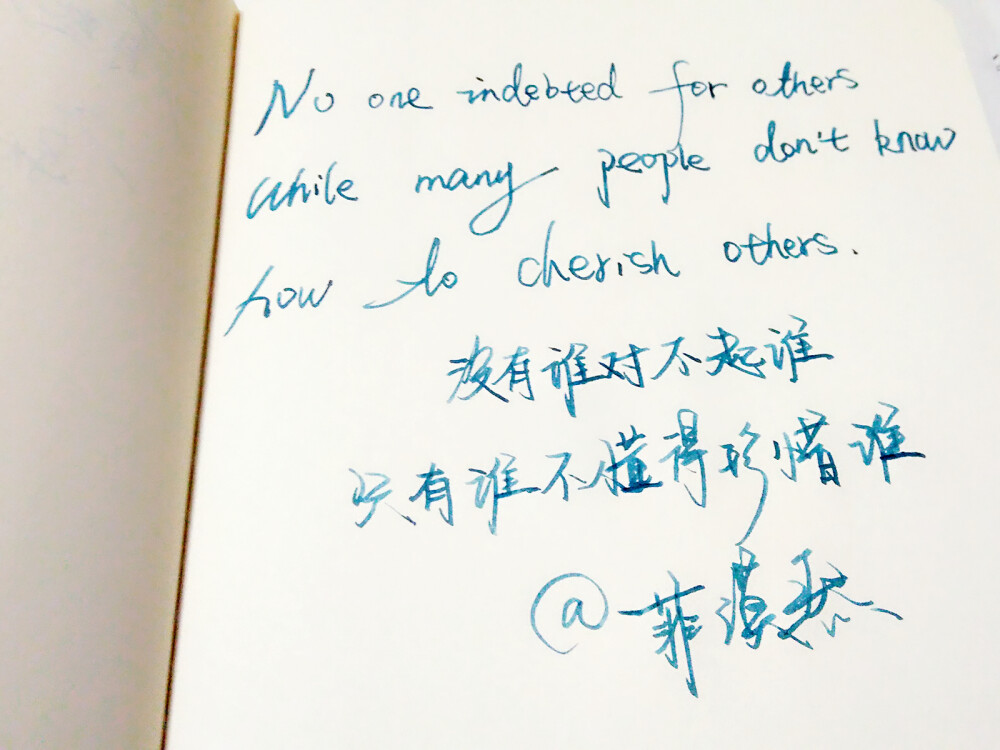 No one indebted for others
while many people don't know
how to cherish others.
没有谁对不起谁
只有谁不懂得珍惜谁
@菲漠然